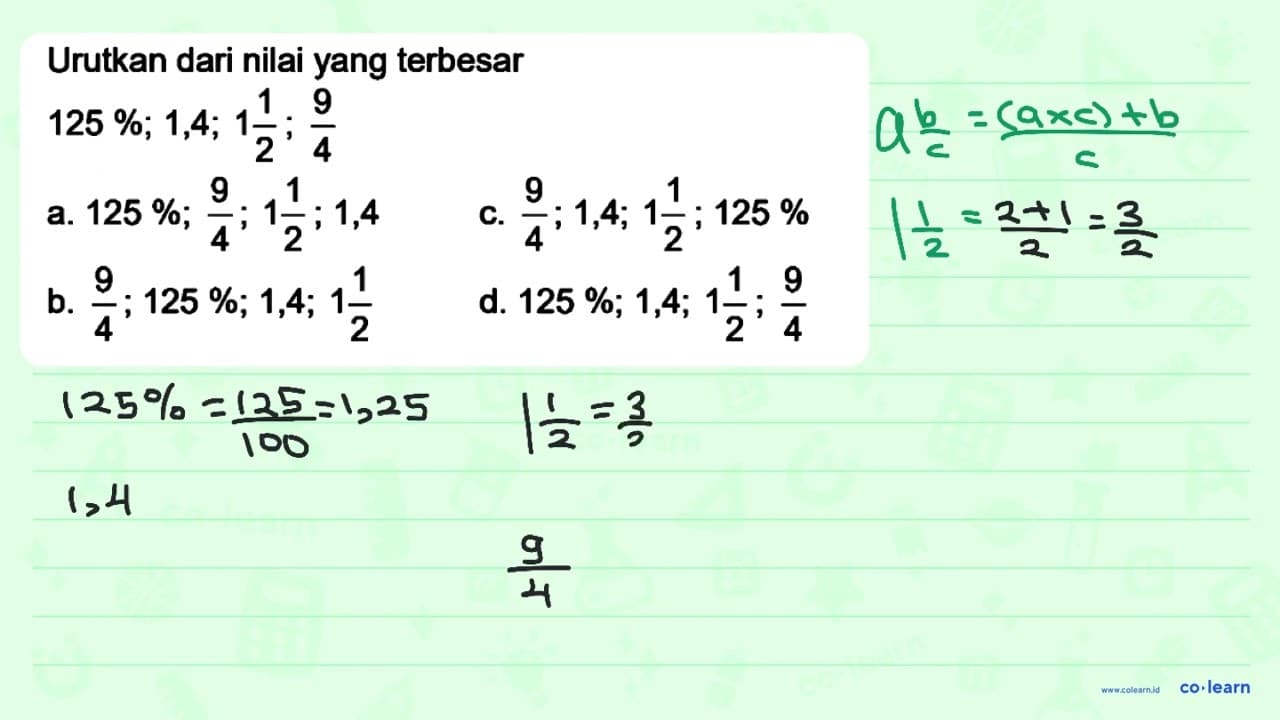 Urutkan dari nilai yang terbesar
125 %; 1,4; 1 1/2; 9/4
a. 125 %; 9/4; 1 1/2; 1,4
b. 9/4; 125 %; 1,4; 1 1/2
c. 9/4; 1,4; 1 1/2; 125 %
d. 125 %; 1,4; 1 1/2; 9/4
a b/c = (a×c)+b/c
1 1/2 = 2+1/2 = 3/2
125% = 125/100 = 1,25
1,4
1 1/2 = 3/2
9/4
www.colearn.id co·learn